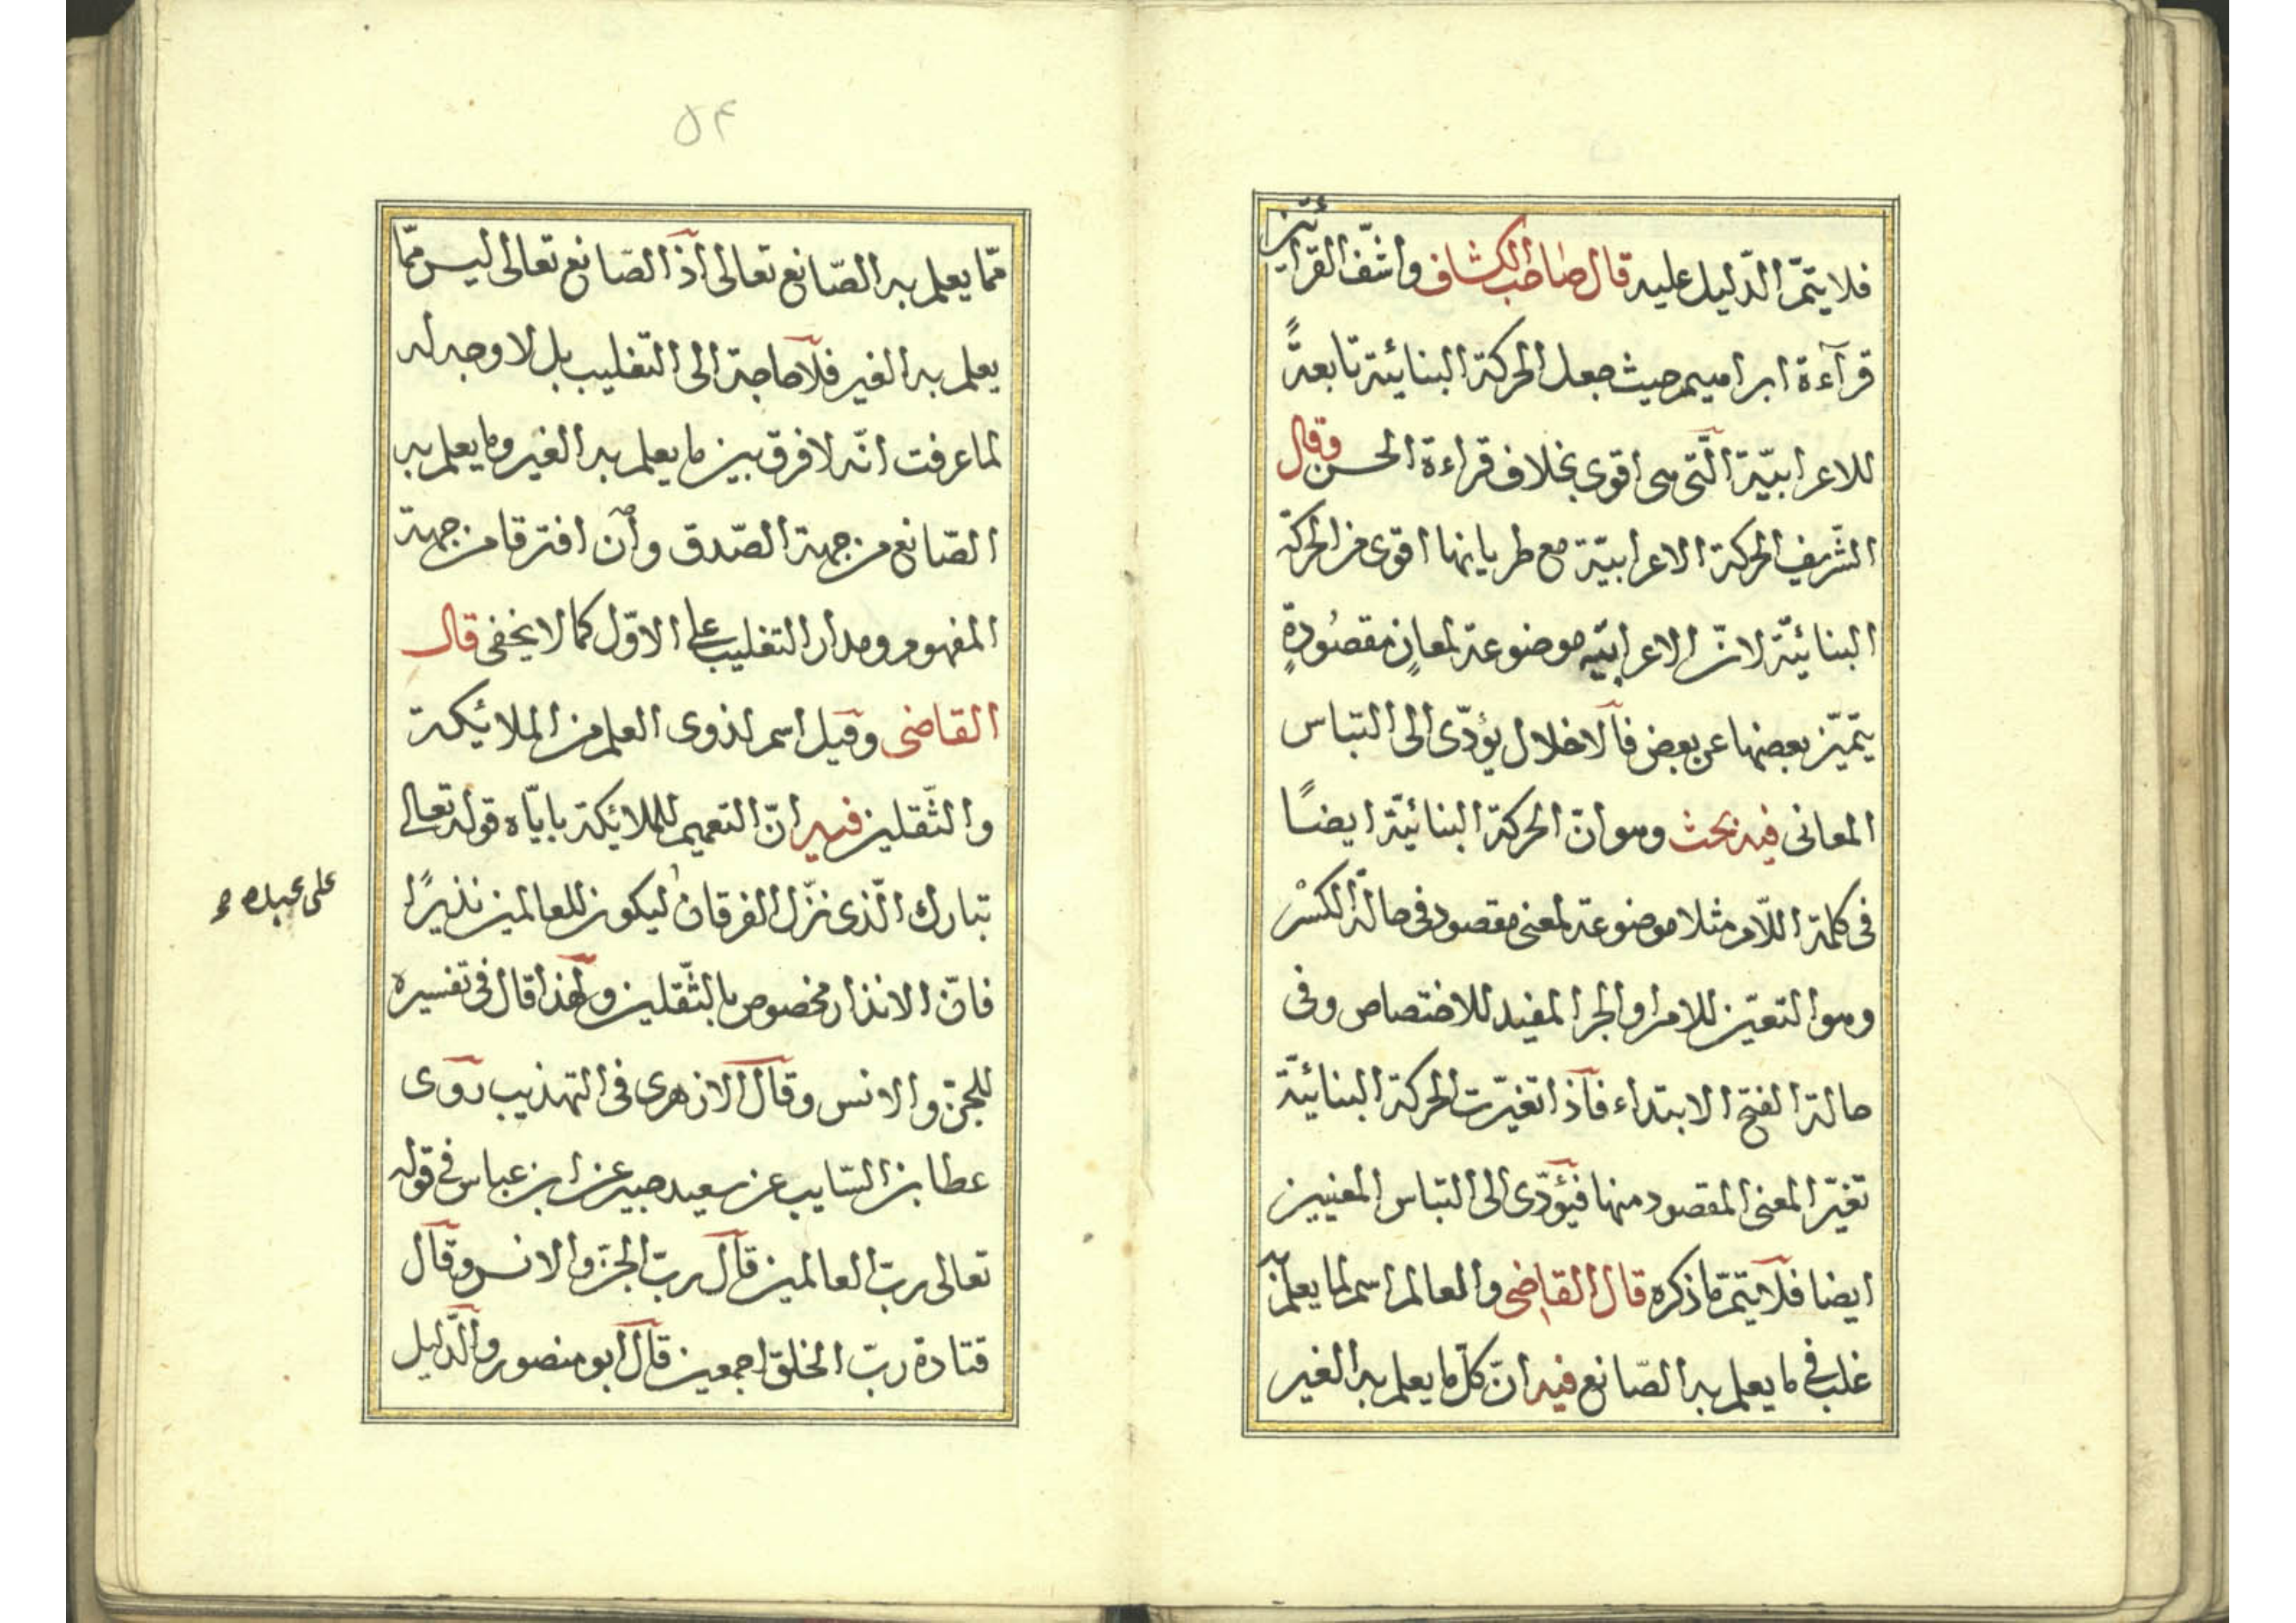 فلا يتمّ الدّليل عليه قال صاحب الكشاف واشفّ القرائتين
قرآءة ابراهيم حيث جعل الحركة البنائيّة تابعةً
للاعرابيّة الّتى هى اقوى بخلاف قراءة الحسن وقال
الشّريف الحركة الاعرابيّة مع طريانها اقوى من الحركة
البنائيّة لانّ الاعرابيّه موضوعة لمعانٍ مقصُودةٍ
يتميّز بعضها عن بعض فالاخلال يؤدّى الى التباس
المعانى فيه بحث وهو انّ الحركة البنائيّة ايضًا
فى كلمة اللّام مثلا موضوعة لمعنى مقصود فى حالة الكسْر
وهو التعيّن للامر او الجر المفيد للاختصاص وفى
حالة الفتح الابتداء فاذا تغيّرت الحركة البنائيّة
تغيّر المعنى المقصود منها فيؤدّى الى التباس المعنيين
ايضا فلا يتمّ ما ذكره قال القاضى والعالم اسم لما يعلم به
غلب فى ما يعلم به الصّانع فيه انّ كلّ ما يعلم به الغير
۵۴
ممّا يعلم به الصّانع تعالى اذ الصّانع تعالى ليس ممّا
يعلم به الغير فلا حاجة الى التغليب بل لا وجه له
لما عرفت انّه لا فرق بين ما يعلم به الغير وما يعلم به
الصّانع من جهة الصّدق وان افترقا من جهة
المفهوم ومدار التغليب على الاوّل كما لا يخفى قال
القاضى وقيل اسم لذوى العلم من الملائيكة
والثّقلين فيه انّ التعميم للملائكة ياباه قوله تعالى
تبارك الّذى نزّل الفرقان ليكون للعالمين نذيرًا
على عبده
فانّ الانذار مخصوص بالثّقلين ولهذا قال فى تفسيره
للجنّ والانس وقال الازهرى فى التهذيب روى
عطا بن السّايب عن سعيد جبير عن ابن عباس فى قوله
تعالى ربّ العالمين قال ربّ الجنّ والانس وقال
قتادة ربّ الخلق اجمعين قال ابو منصور والدّليل